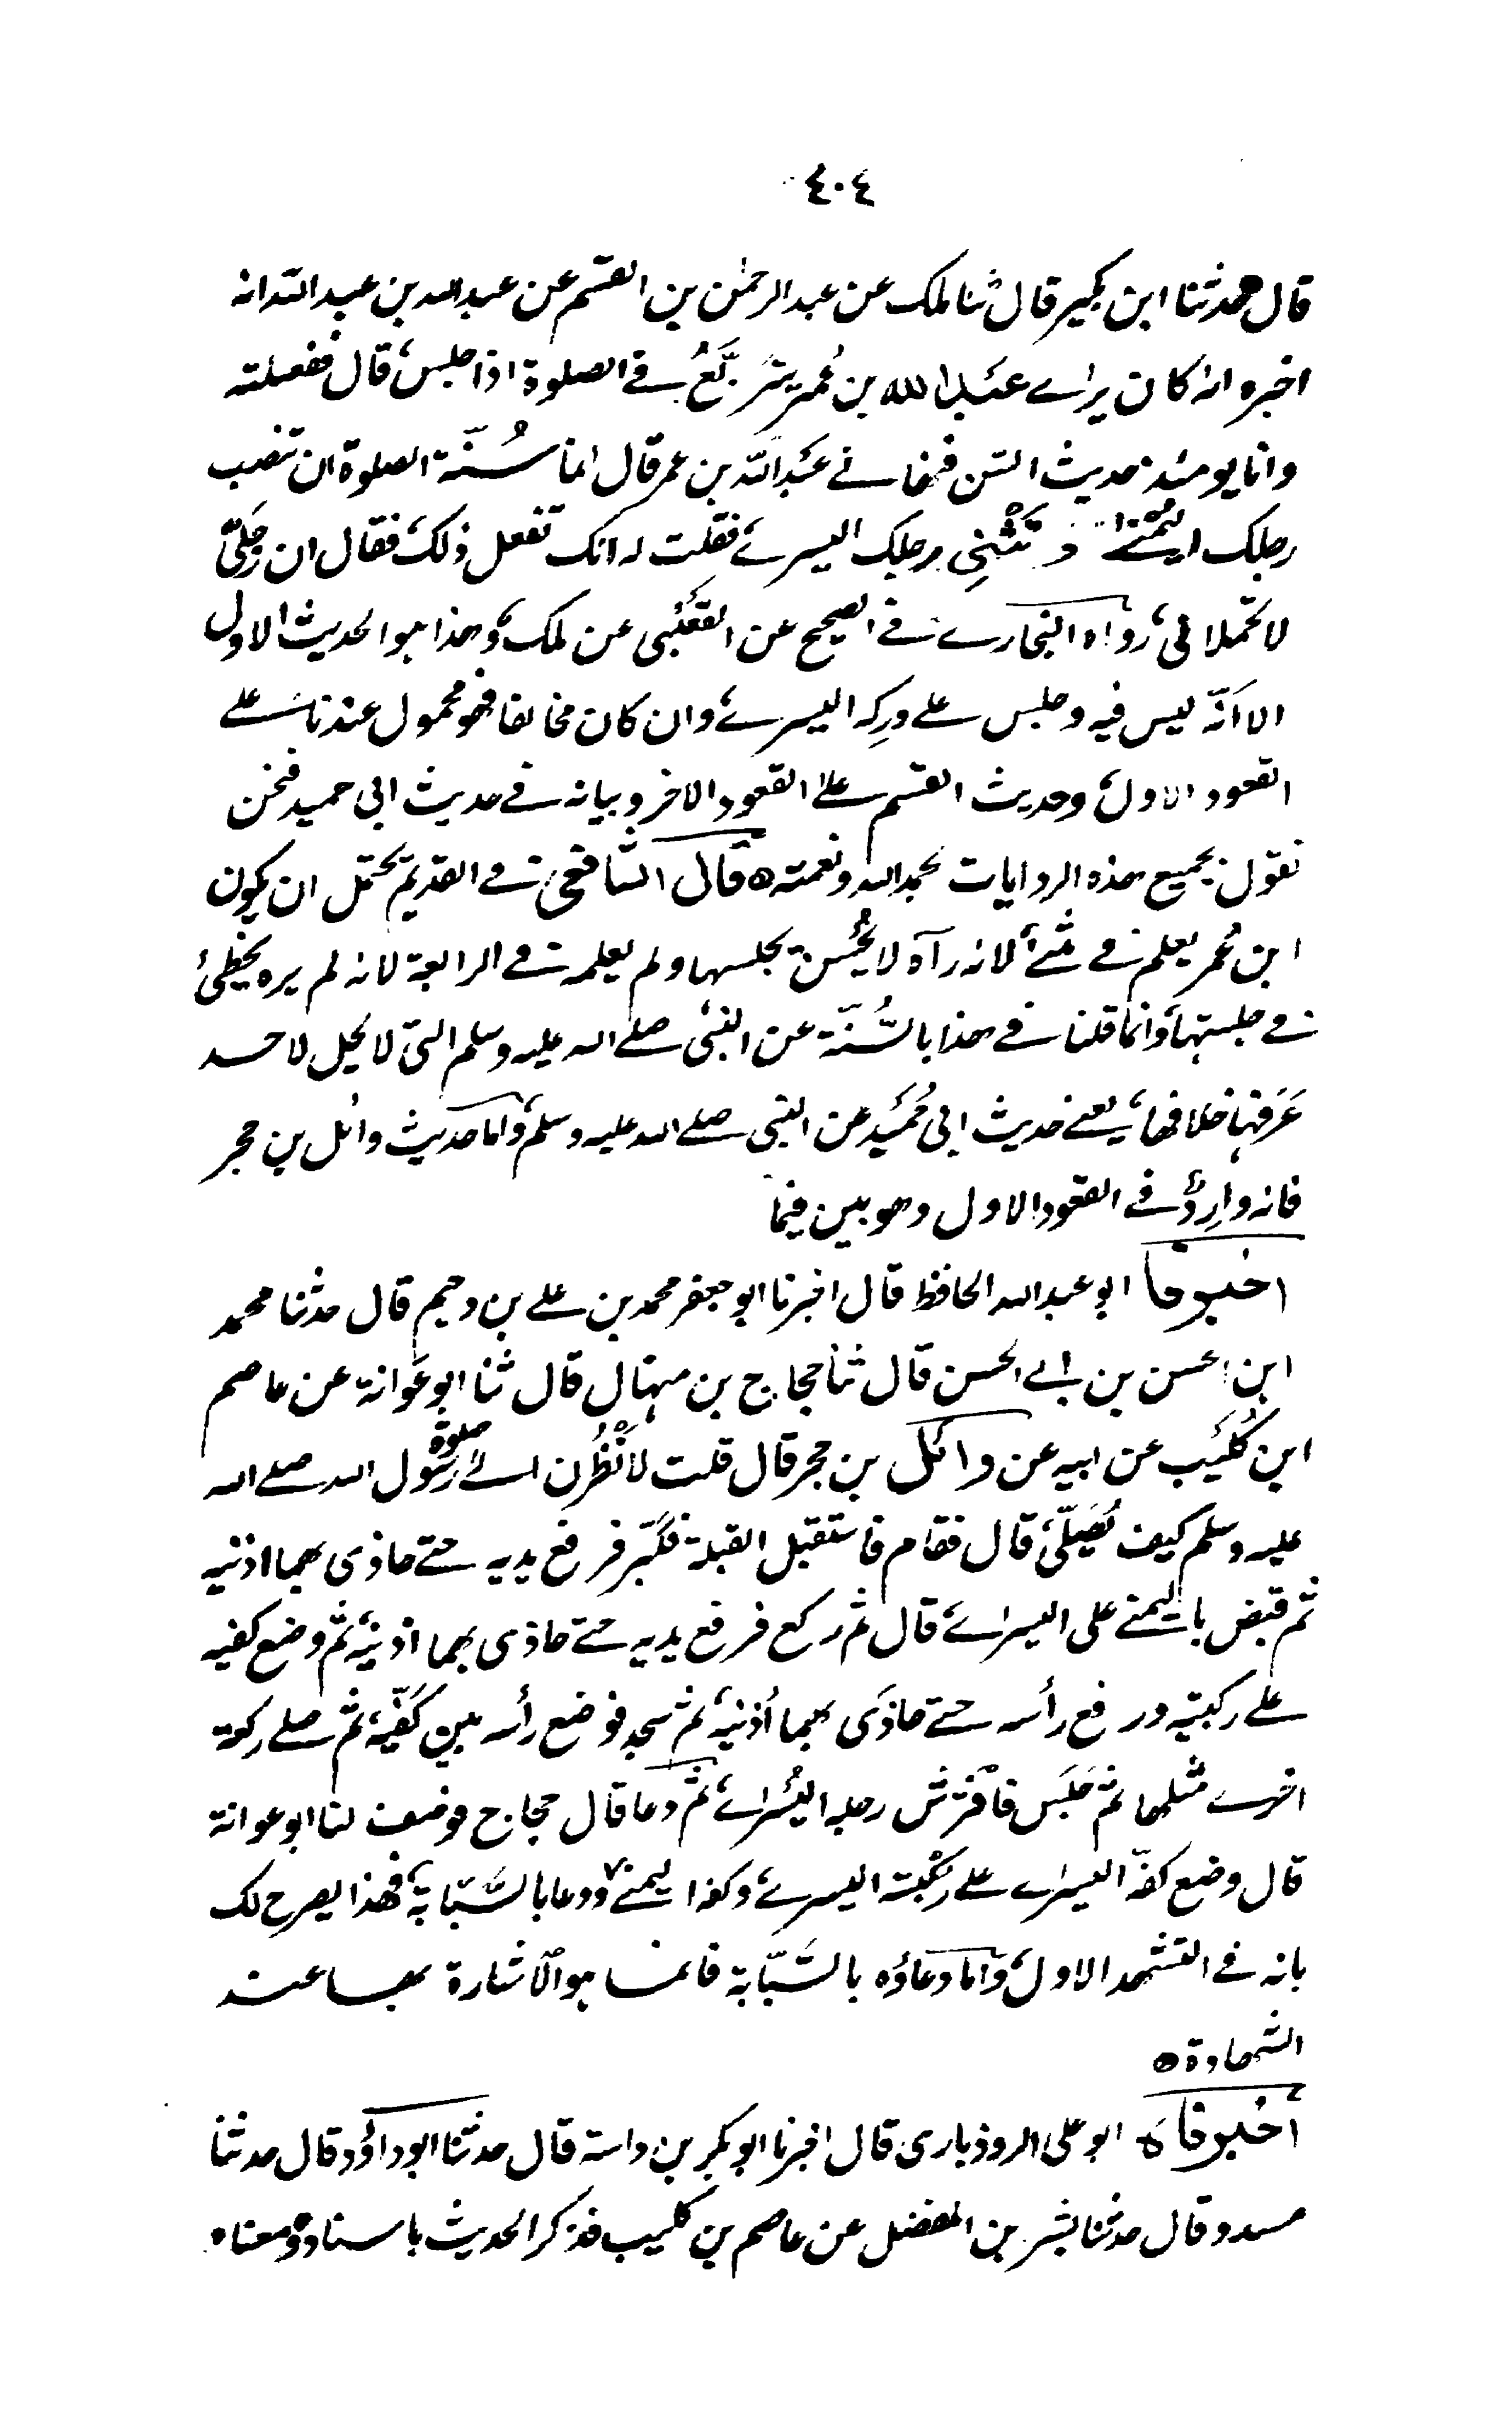 ٤٠٤
قال حدثنا ابن بكير قال ثنا ملك عن عبد الرحمٰن بن القسم عن عبد الله بن عبد الله انه
اخبره انه كان يرٰے عبد الله بن عُمر يتربَّعُ فے الصلوة اذا جلس، قال ففعلته
وانا يومئذ حديث السن فنهانے عبد الله بن عمر قال انما سُنّة الصلوة ان تنصب
رجلك اليُمْنے و تَثْنِى رجلك اليسرے، فقلت له انك تفعل ذلك، فقال ان رجلَىَّ
لا تحملانى، رواه البخارے فے الصحيح عن القعنبى عن ملك، وهذا هو الحديث الاول
الا اَنّه ليس فيه وجلس علے ورِكه اليسرے، وان كان مخالفا فهو محمول عندنا علے
القعود الاول، وحديث القسم علے القعود الاخر وبيانه فے حديث ابى حميد فنحن
نقول بجميع هذه الروايات بحمد الله ونعمته ٥ قال الشافعى فے القديم يحتمل ان يكون
ابن عُمر يعلم فے شئ لانه رآه لا يُحْسن يجلسها ولم يعلمه فے الرابعة لانه لم يره يخطئ
فے جلستها، وانما قلنا فے هذا بالسُّنّة عن النبى صلے الله عليه وسلم التى لا يحل لاحد
عَرَفها خلافها، يعنے حديث ابى حُمَيد عن النبى صلے الله عليه وسلم، واما حديث وائل بن حجر
فانه وارِدٌ فے القعود الاول وهو بين فيما
اخبرنا ابو عبد الله الحافظ قال اخبرنا ابو جعفر محمد بن علے بن دحيم قال حدثنا محمد
ابن الحسن بن ابے الحسن قال ثنا حجاج بن منهال قال ثنا ابو عَوانة عن عاصم
ابن كُلَيب عن ابيه عن وائل بن حجر قال قلت لاَنْظُرن الےٰ صلوة رسول الله صلے الله
عليه وسلم كيف يُصَلّى، قال فقام فاستقبل القبلة فكبّر فرفع يديه حتے حاذى بهما اذنيه
ثم قبض باليمنے على اليسرٰے، قال ثم ركع فرفع يديه حتے حاذى بهما اذنيه، ثم وضع كفيه
علے ركبتيه ورفع رأسه حتے حاذَى بهما اُذنيه، ثم سجد فوضع رأسه بين كَفّيه، ثم صلے ركعة
اخرے مثلها ثم جَلَس فافترش رجله اليُسرٰے، ثم دعا قال حجاج فوصف لنا ابو عوانة
قال وضع كفّه اليسرٰے علے ركْبته اليسرے، وكفه اليمنے ودعا بالسَّبّابة، فهذا يصرح لك
بانه فے التشهد الاول، واما دعاؤه بالسَّبّابة فانما هو الاشارة بها عند
الشهادة ٥
اخبرنا ه ابو على الروذبارى قال اخبرنا ابو بكر بن داسة قال حدثنا ابو داؤد قال حدثنا
مسدد قال حدثنا بشر بن المفضل عن عاصم بن كليب فذكر الحديث باسناده ومعناه